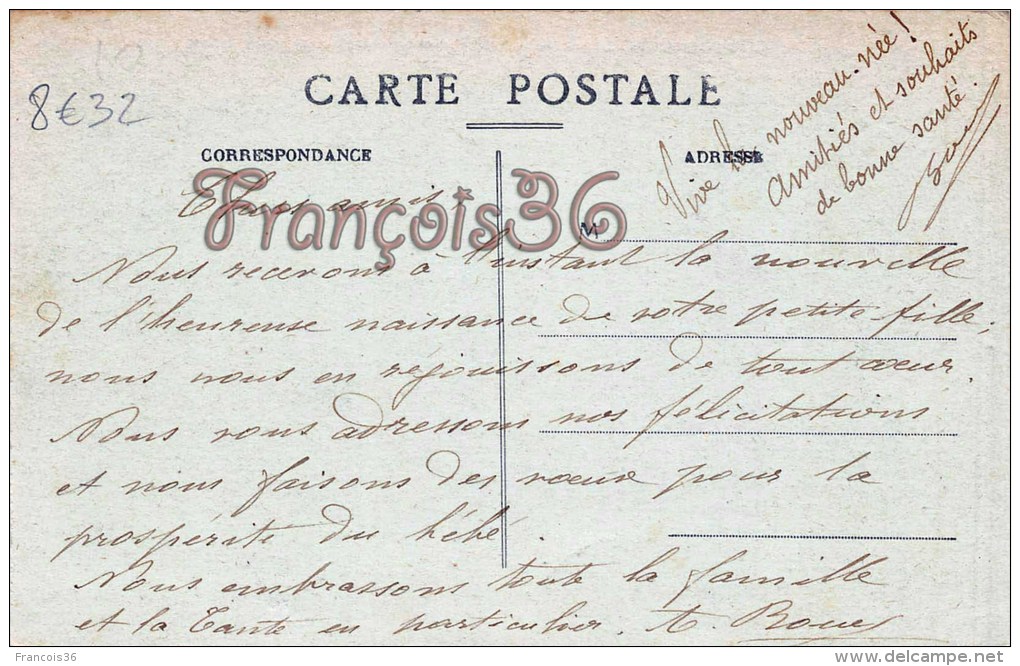 8€32
CARTE POSTALE
CORRESPONDANCE
ADRESSE
Vive la nouveau-née!
Amitiés et souhaits
de bonne santé.
François36
Chers amis,
M
Nous recevons à l'instant la nouvelle
de l'heureuse naissance de votre petite fille,
nous nous en réjouissons de tout cœur.
Nous vous adressons nos félicitations
et nous faisons des vœux pour la
prospérité du bébé.
Nous embrassons toute la famille
et la Tante en particulier.
Francois36
www.delcampe.net